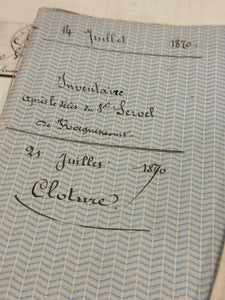 14 Juillet 1870.
Inventaire
après le décès du Sr. Servel
de
21 Juillet 1870
Cloture